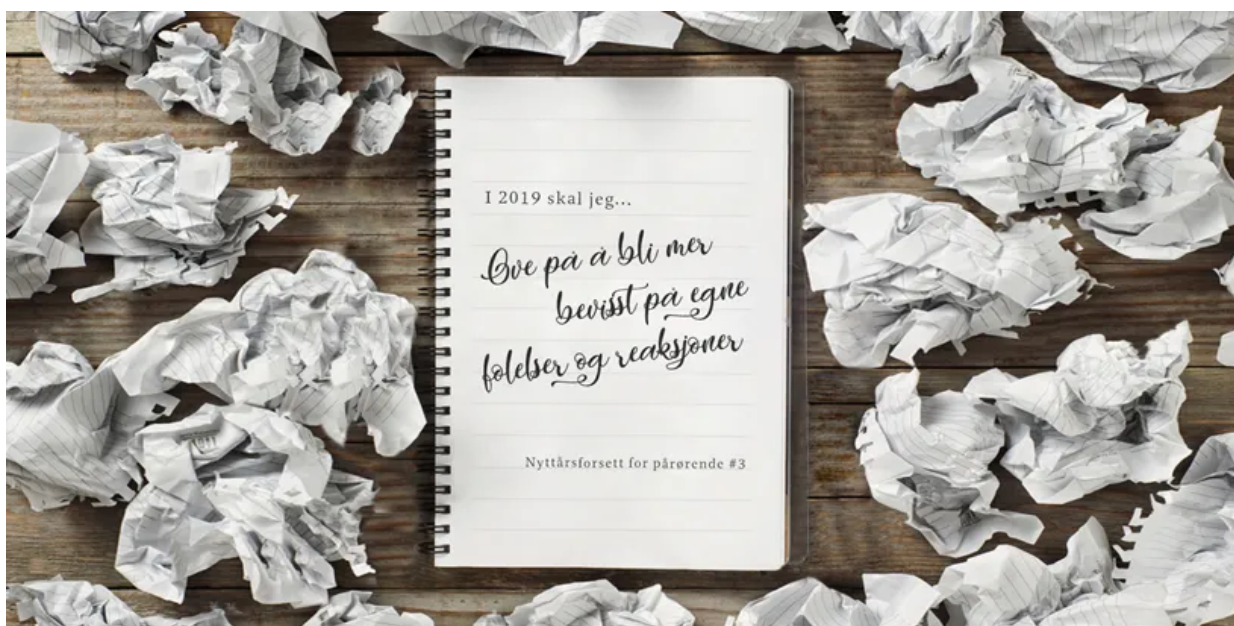 I 2019 skal jeg...
Øve på å bli mer
bevisst på egne
følelser og reaksjoner
Nyttårsforsett for pårørende #3